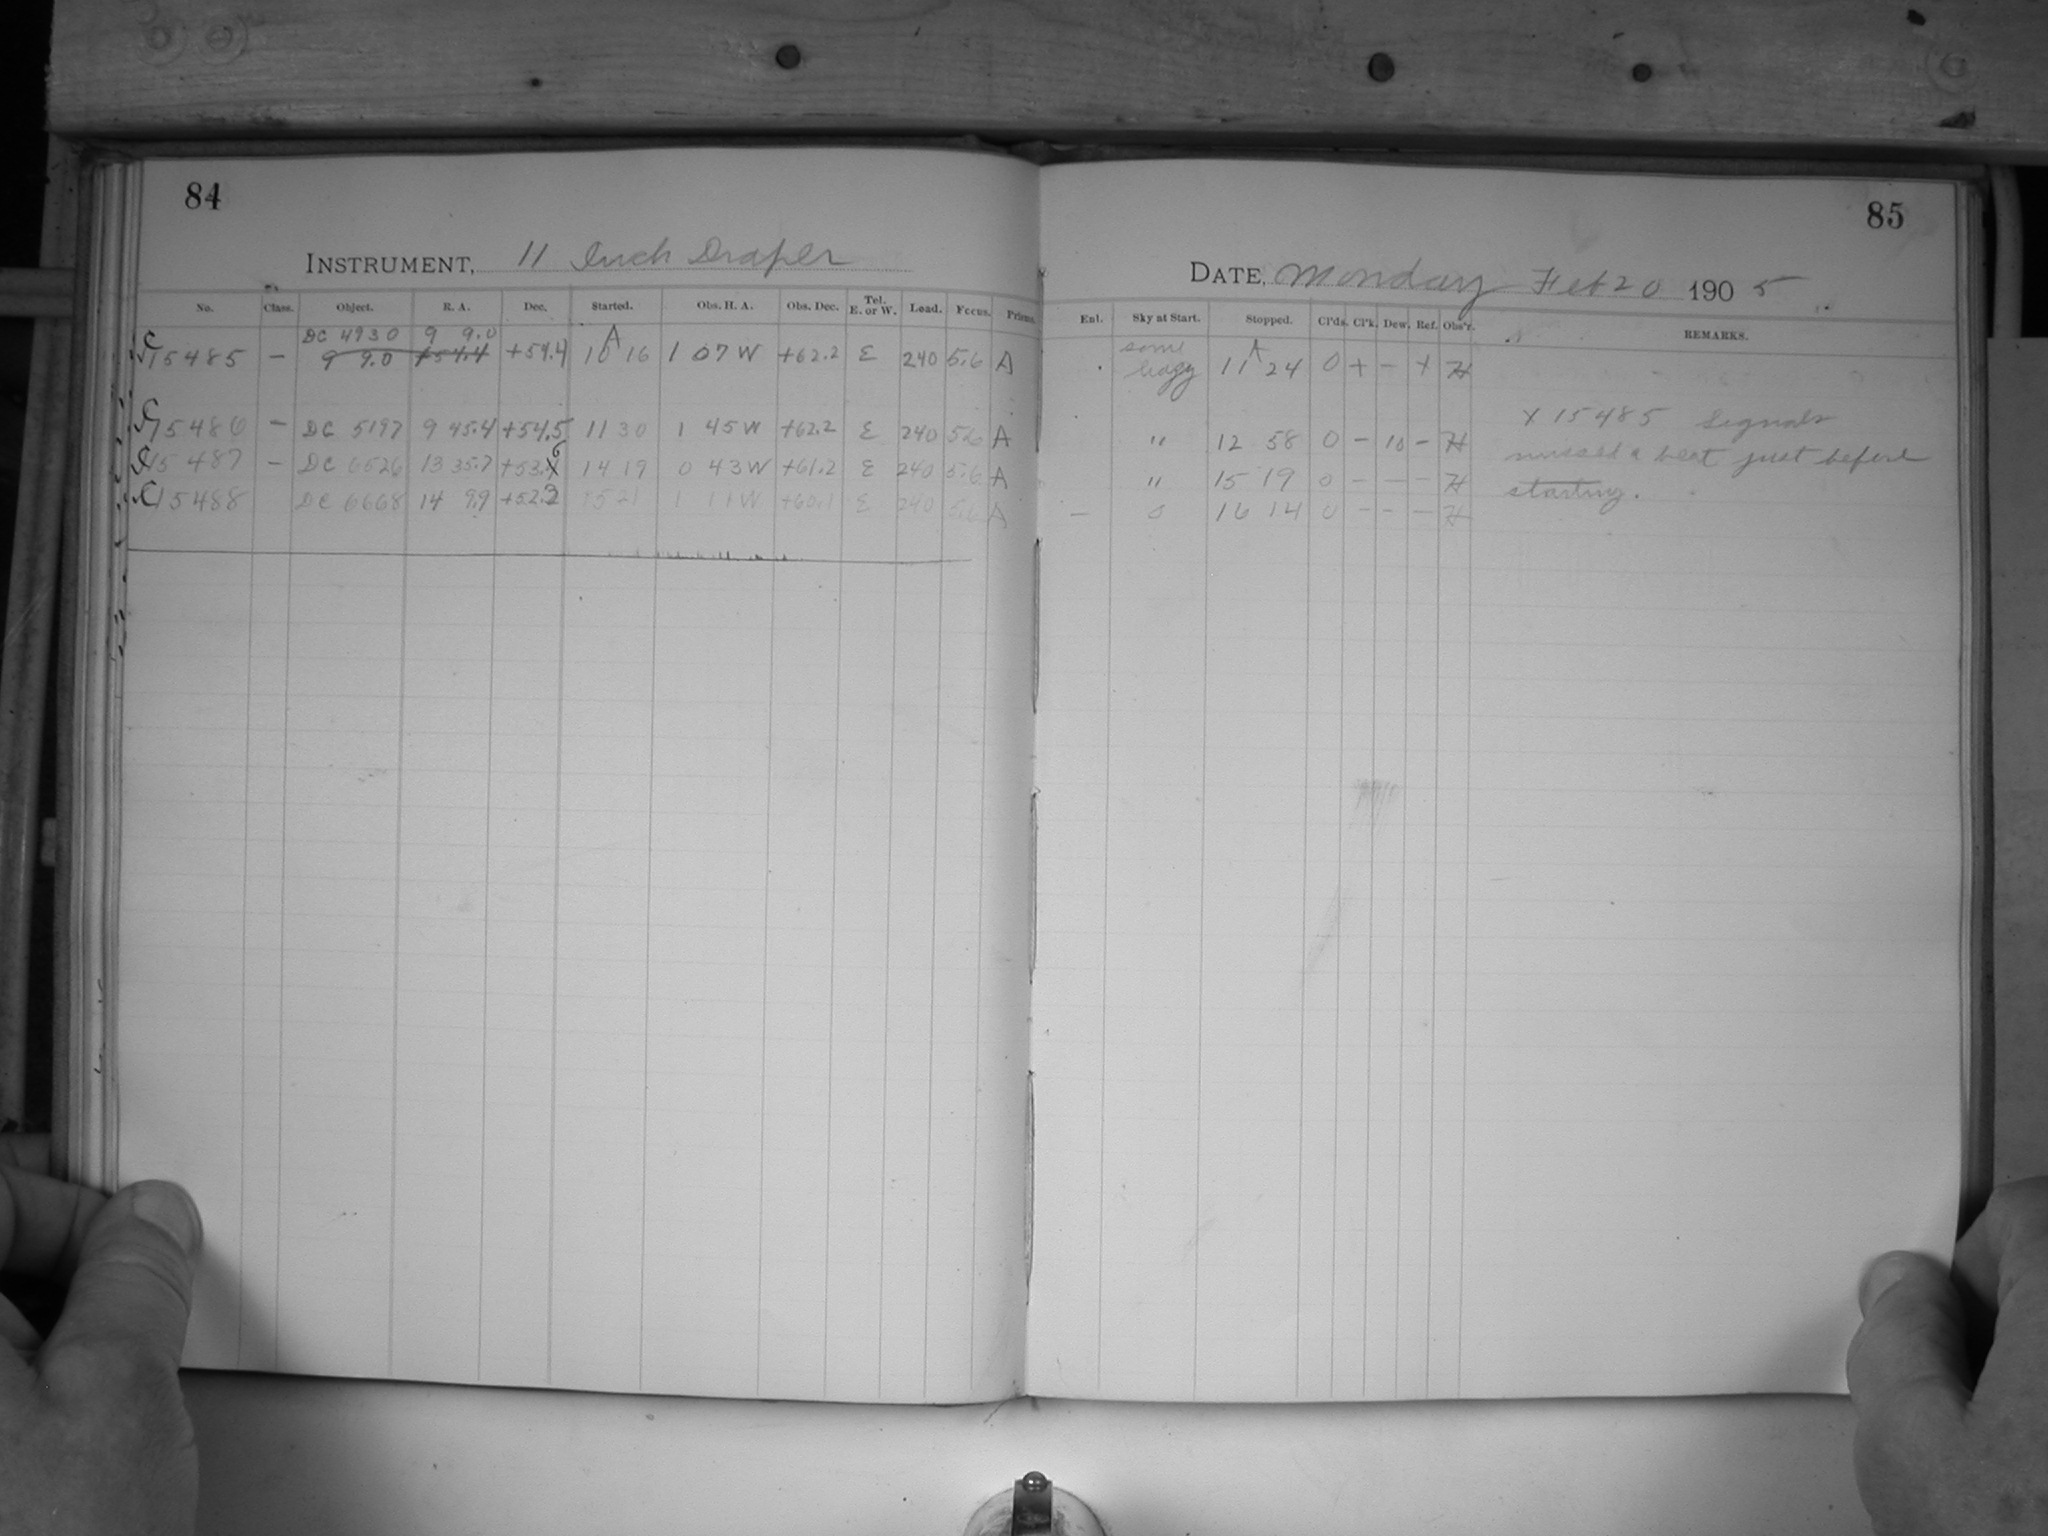 84
INSTRUMENT, 11 Inch Draper
No. Class. Object. R. A. Dec. Started. Obs. H. A. Obs. Dec. Tel. E. or W. Load. Focus. Prisms.
DC 4930 9 9.0 A
C15485 – 9 9.0 +54.4 +54.4 10 16 1 07 W +62.2 E 240 5.6 A
C15486 – DC 5197 9 45.4 +54.5 11 30 1 45 W +62.2 E 240 5.6 A
C15487 – DC 6526 13 35.7 +53.6 14 19 0 43 W +61.2 E 240 5.6 A
C15488 DC 6668 14 9.9 +52.3 15 21 1 11 W +60.1 E 240 5.6 A
85
DATE, Monday Feb 20 1905
Enl. Sky at Start. Stopped. Cl'ds. Cl'k. Dew. Ref. Obs'r. REMARKS.
some A
hazy 11 24 0 + – + H
" 12 58 0 – 10 – H
" 15 19 0 – – – H
– 0 16 14 0 – – – H
X 15485 Signals
missed a beat just before
starting.